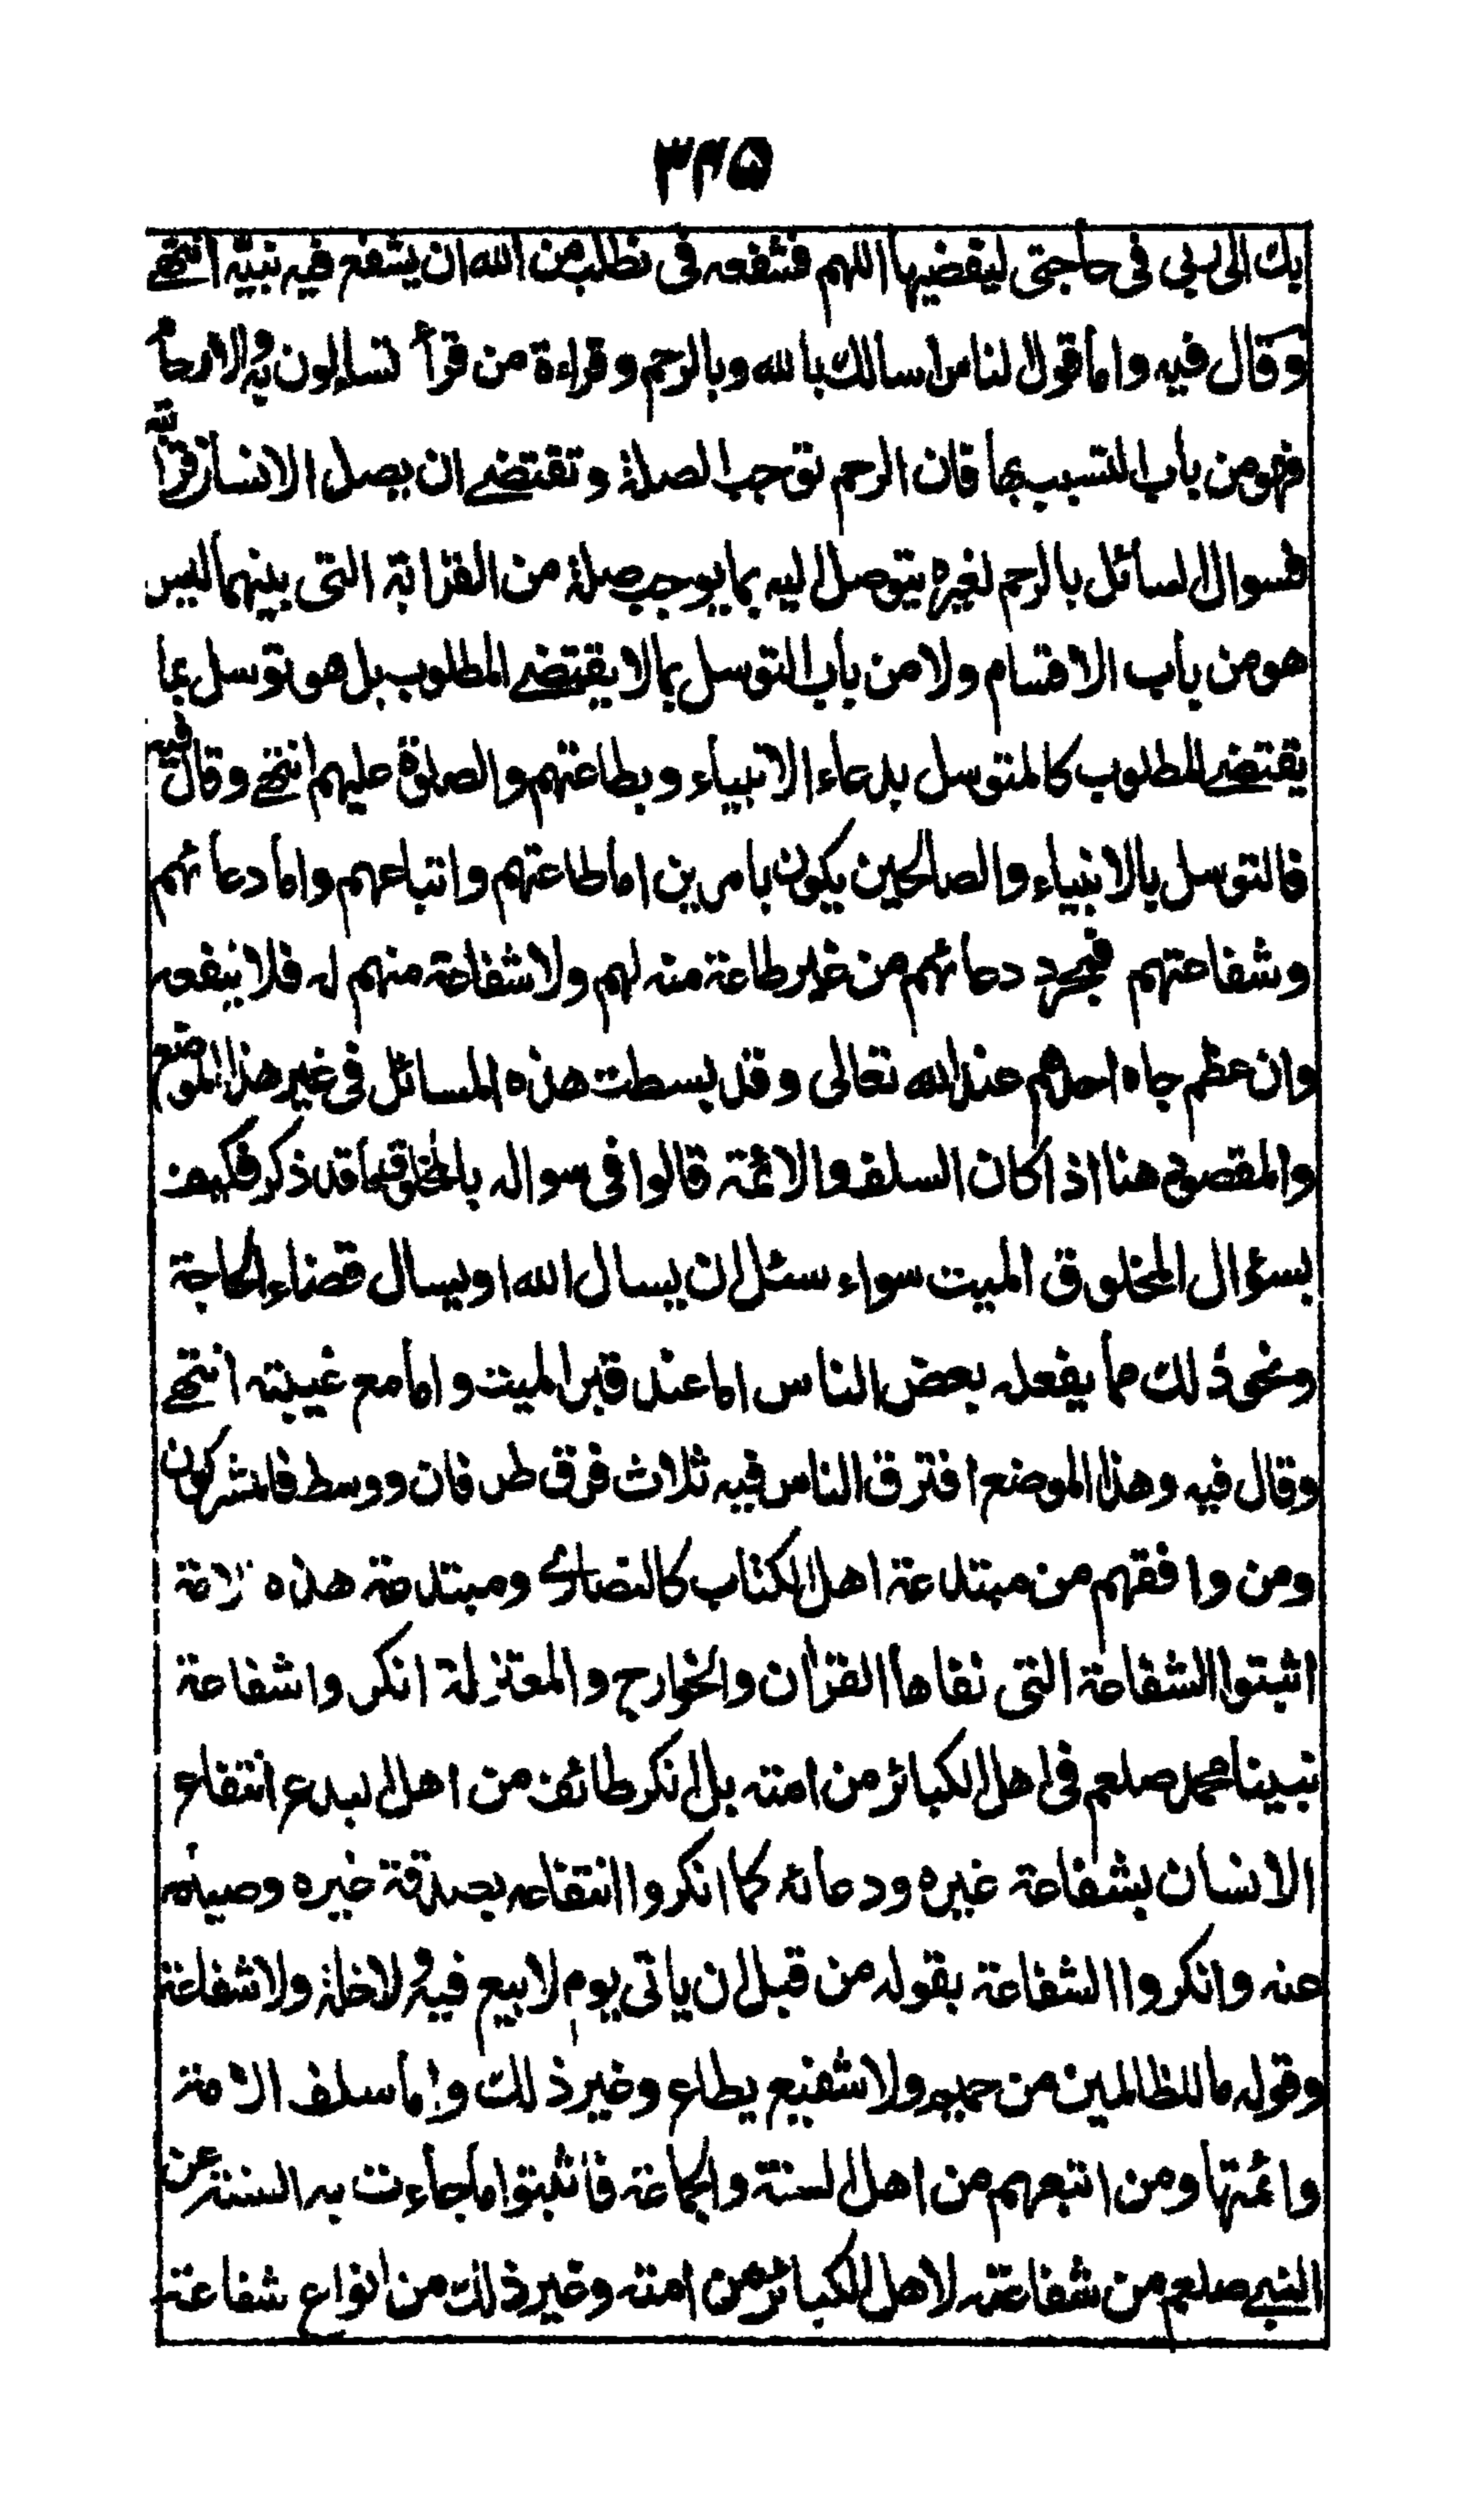 ۳۳۵
بك الى ربى فى حاجتى ليقضيها اللهم فشفعه فى نطلب من الله ان يشفع فيه نبيه انتهى
وقال فيه واما قول الناس اسالك بالله وبالرحم وقراءة من قرأ تساءلون به والارحام
فهو من باب التسبب بها فان الرحم توجب الصلة وتقتضى ان يصل الانسان قرابته
فسوال السائل بالرحم لغيره يتوصل اليه بما يوجب صلة من القرابة التى بينهما ليس
هو من باب الاقسام ولا من باب التوسل بما لا يقتضى المطلوب بل هو توسل بما
يقتضى المطلوب كالمتوسل بدعاء الانبياء وبطاعتهم والصلوة عليهم انتهى وقال فيه
فالتوسل بالانبياء والصالحين يكون بامرين اما طاعتهم واتباعهم واما دعائهم
وشفاعتهم فبمجرد دعائهم من غير طاعة منه لهم ولا شفاعة منهم له فلا ينفعه
وان عظم جاه احدهم عند الله تعالى وقد بسطت هذه المسائل فى غير هذا الموضع
والمقصود هنا اذا كان السلف والائمة قالوا فى سواله بالمخلوق ما قد ذكر فكيف
بسؤال المخلوق الميت سواء سئل ان يسال الله او يسال قضاء الحاجة
ونحو ذلك مما يفعله بعض الناس اما عند قبر الميت واما مع غيبته انتهى
وقال فيه وهذا الموضع افترق الناس فيه ثلاث فرق طرفان ووسط فالمشركون
ومن وافقهم من مبتدعة اهل الكتاب كالنصارى ومبتدعة هذه الامة
اثبتوا الشفاعة التى نفاها القران والخوارج والمعتزلة انكروا شفاعة
نبينا محمد صلعم فى اهل الكبائر من امته بل انكر طائف من اهل البدع انتفاع
الانسان بشفاعة غيره ودعائه كما انكروا انتفاعه بصدقة غيره وصيامه
عنه وانكروا الشفاعة بقوله من قبل ان ياتى يوم لا بيع فيه ولا خلة ولا شفاعة
وقوله ما للظالمين من حميم ولا شفيع يطاع وغير ذلك واما سلف الامة
وائمتها ومن اتبعهم من اهل السنة والجماعة فاثبتوا ما جاءت به السنة عن
النبى صلعم من شفاعته لاهل الكبائر من امته وغير ذلك من انواع شفاعته